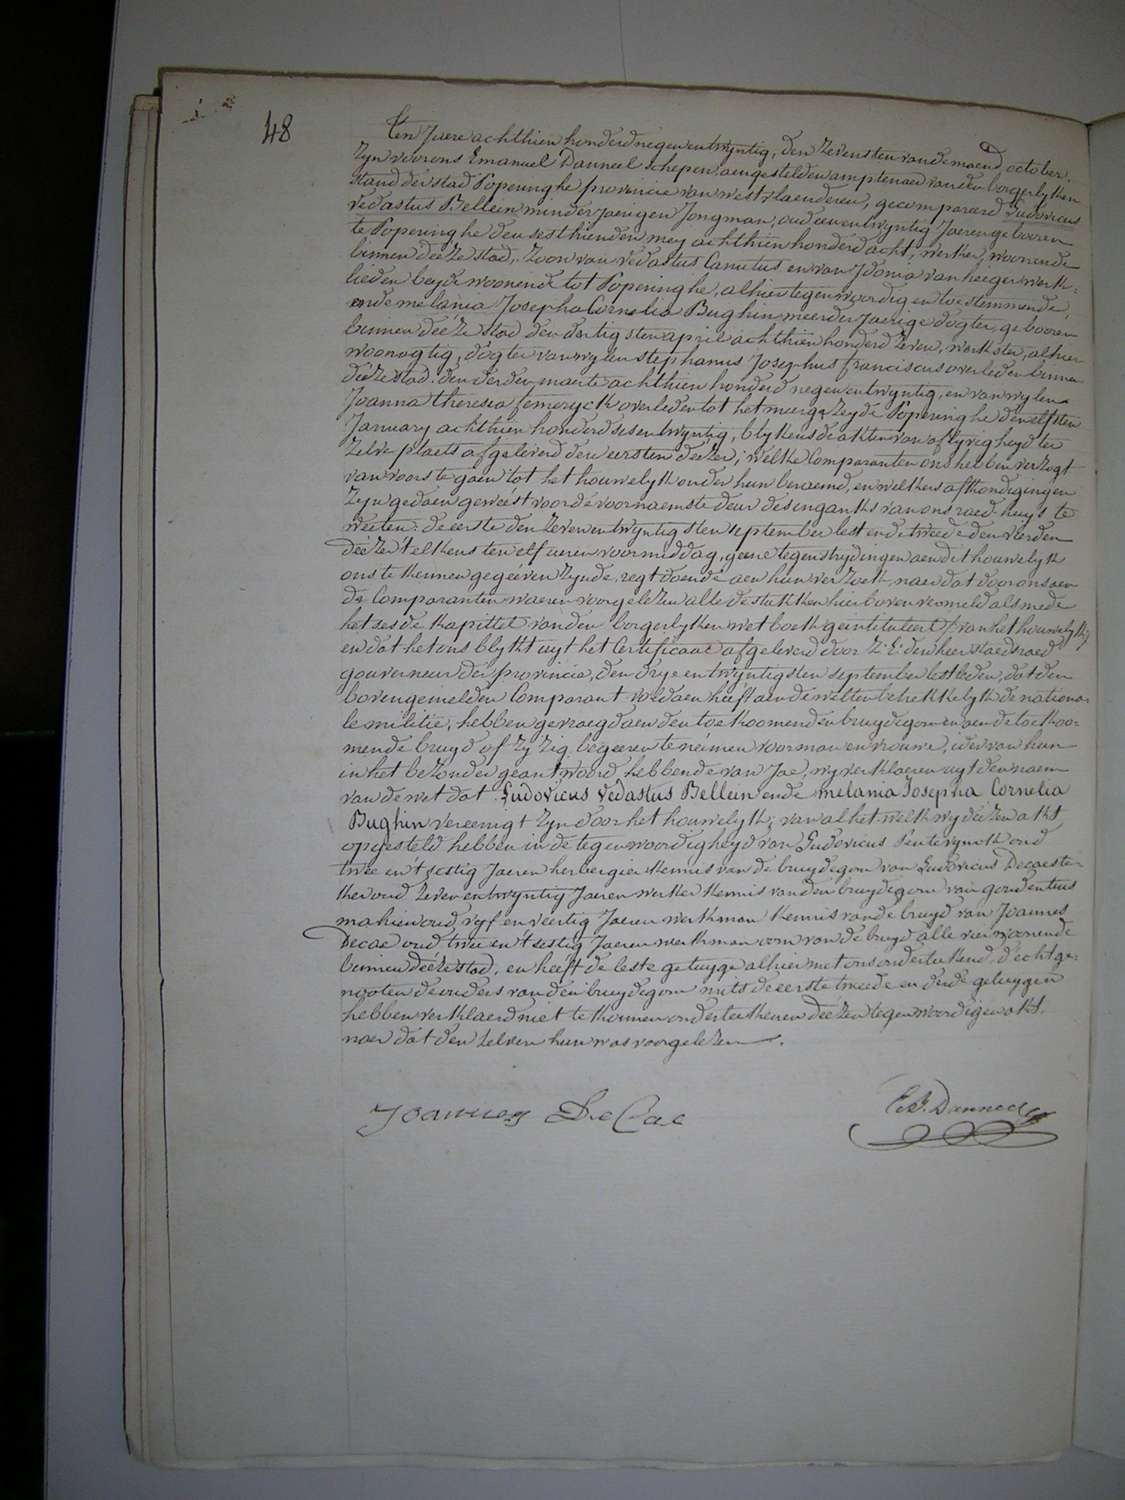 48
Ten Jaere achthien honderd negenentwyntig, den zevensten van de maend october,
Zyn voor ons Emanuel Danneel schepen aengestelden amptenaer van den borgerlyken
stand der stad Poperinghe provincie van westvlaenderen, gecompareerd Ludovicus
vedastus Bellein minderjaerigen Jongman, oud eenentwyntig Jaeren gebooren
te Poperinghe den sesthienden mey achthien honderd acht, werker, woonende
binnen deéze stad, zoon van vedastus Canutus en van Idonia van heiger werk-
lieden beyde woonende tot Poperinghe, alhier tegenwoordig en toestemmende,
ende melania Josepha Cornelia Bughin meerderjaerige dogter, gebooren
binnen deéze stad den dertigsten april achthien honderd zeven, werkster, alhier
woonagtig, dogter van wylen stephanus Josephus franciscus overleden binnen
deéze stad den derden maerte achthien honderd negenentwyntig, en van wylen
Joanna theresia femeryck overleden tot het meergezeyde Poperinghe den elfsten
January achthien honderd sesentwyntig, blykens de akten van aflyvigheyd ter
zelve plaets afgeleverd den eersten deézer, welke Comparanten ons hebben verzogt
van voorts te gaen tot het houwelyk onder hun beraemd, en welkers afkondigingen
Zyn gedaen geweést voor de voornaemste deur des inganks van ons raed-huys te
weéten: de eerste den zevenentwyntigsten september lest ende tweede den vierden
deézer telkens ten elf ueren voormiddag, geene tegenstrydingen aen dit houwelyk
ons te kennen gegeéven zynde, regt doende aen hun verzoek, naer dat door ons aen
de Comparanten waeren voorgelezen alle de stukken hier boven vermeld als mede
het sesde kapittel van den borgerlyken wetboek geintituleert van het houwelyk,
en dat het ons blykt uyt het Certificaat afgeleverd door Z: E: den heer staedsraed
gouverneur der provincie, den drye en twyntigsten september lestleden, dat den
bovengemelden Comparant voldaen heéft aen de wetten betrekkelyk de nationa-
le militie, hebben gevraegd aen den toekoomenden bruydegom en aen de toekoo-
mende bruyd of zy zig begeeren te neémen voor man en vrouwe, ider van hun
in het bezonder geantwoord hebbende van Jae, wy verklaeren uyt den naem
van de wet dat Ludovicus vedastus Bellein ende melania Josepha Cornelia
Bughin vereenigt zyn door het houwelyk; van al het welk wy deézen akt
opgesteld hebben in de tegenwoordigheyd van Ludovicus Penteynck oud
twee en 't sestig Jaeren herbergier kennis van de bruydegom van Ludovicus Decaeste-
ker oud zevenentwyntig Jaeren werker kennis van den bruydegom van goudentius
mahieu oud vyf en veertig Jaeren werkman kennis van de bruyd van Joannes
Decae oud twee en 't sestig Jaeren werkman oom van de bruyd alle vier woonende
binnen deéze stad, en heéft de leste getuyge alhier met ons onderteekend, d'echtge-
nooten de ouders van den bruydegom mits de eerste tweede en derde getuygen
hebben verklaerd niet te konnen onderteekenen deézen tegenwoordigen akt,
naer dat den zelven hun was voorgelezen.
Joannes De Cae
E. J. Danneel